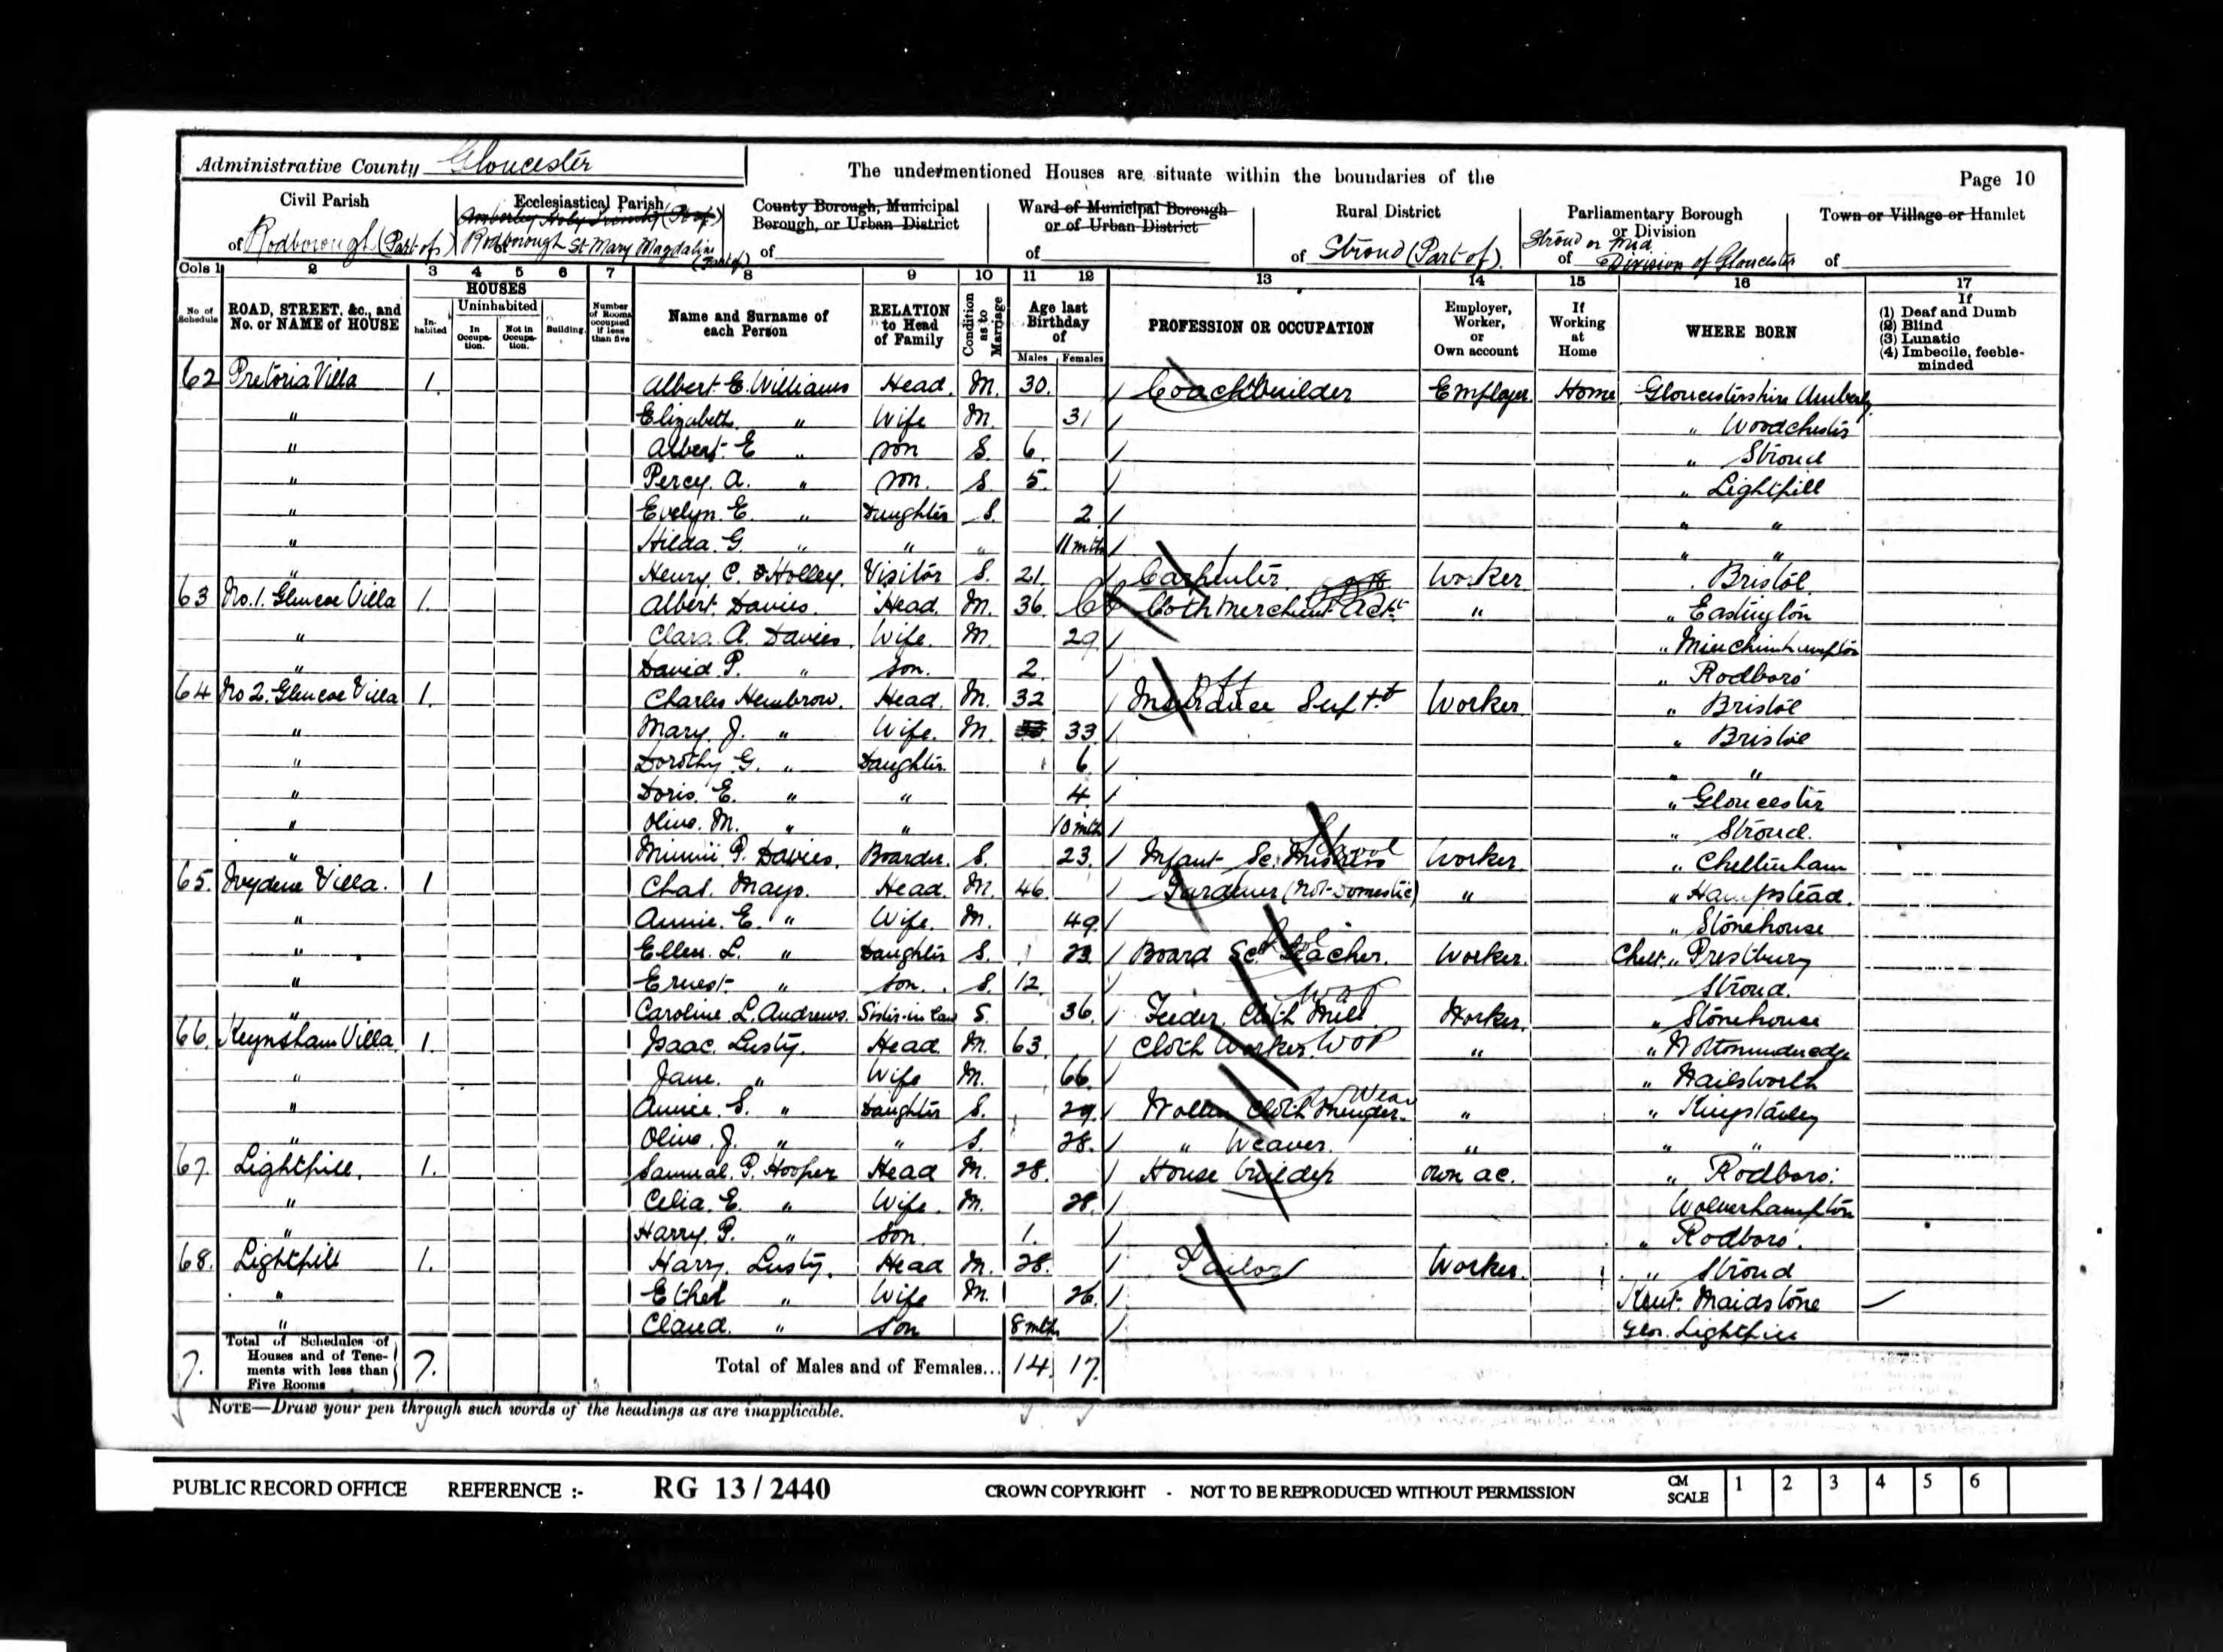 Administrative County Gloucester
The undermentioned Houses are situate within the boundaries of the
Page 10
Civil Parish of Rodborough (Part of)
Ecclesiastical Parish Amberley Holy Trinity (Part of) Rodborough St Mary Magdaline (Part of)
County Borough, Municipal Borough, or Urban District of
Ward of Municipal Borough or of Urban District of
Rural District of Stroud (Part of)
Parliamentary Borough or Division of Stroud or Mid Division of Gloucester
Town or Village or Hamlet of
Cols 1 2 3 4 5 6 7 8 9 10 11 12 13 14 15 16 17
No of Schedule
ROAD, STREET, &c., and No. or NAME of HOUSE
HOUSES
Inhabited
Uninhabited
In Occupation.
Not in Occupation.
Building
Number of Rooms occupied if less than five
Name and Surname of each Person
RELATION to Head of Family
Condition as to Marriage
Age last Birthday of
Males Females
PROFESSION OR OCCUPATION
Employer, Worker, or Own account
If Working at Home
WHERE BORN
If (1) Deaf and Dumb (2) Blind (3) Lunatic (4) Imbecile, feeble-minded
62 Pretoria Villa 1. Albert E. Williams Head M. 30. Coachbuilder Employer Home Gloucestershire Amberley
" Elizabeth " Wife M. 31 " Woodchester
" Albert E " Son S. 6. " Stroud
" Percy A. " Son. S. 5. " Lightpill
" Evelyn E. " Daughter S. 2. " "
" Hilda G. " " " 11 mth " "
" Henry C. Holley. Visitor S. 21. Carpenter. Worker . Bristol
63 No. 1. Glencoe Villa 1. Albert Davies. Head. M. 36. Cloth Merchant Worker " " Eastington
" Clara A. Davies. Wife. M. 29. " Minchinhampton
" David P. " Son. 2. " Rodboro'
64 No 2. Glencoe Villa 1. Charles Hembrow. Head. M. 32 Insurance Supt Worker " Bristol
" Mary J. " Wife. M. 33 " Bristol
" Dorothy G. " Daughter. 6. " "
" Doris E. " " 4. " Gloucester
" Olive M. " " 10 mth " Stroud.
" Minnie P. Davies. Boarder. S. 23. Infant Sc. Mistress School Worker. " Cheltenham
65. Ivydene Villa. 1 Chas. Mayo. Head. M. 46. Gardener (Not-Domestic) " " Hampstead.
" Annie E. " Wife. M. 49. " Stonehouse
" Ellen L. " Daughter S. 23. Board Sc Teacher. Worker. Chelt. " Prestbury
" Ernest " Son. S. 12. Stroud.
" Caroline L. Andrews. Sister-in-law S. 36. Feeder. Cloth Mill. Worker. " Stonehouse
66. Keynsham Villa 1. Isaac Lusty. Head. M. 63. Cloth Worker. WOP " " Wottonunderedge
" Jane. " Wife M. 66. " Nailsworth
" Annie S. " Daughter S. 29. Wollen Cloth Mender. Wear " " Kingstanley
" Olive J. " " S. 28. " Weaver. " " "
67. Lightpill. 1. Samual P. Hooper Head M. 28. House builder own ac. " Rodboro:
" Celia E. " Wife. M. 28. Wolverhampton
" Harry P. " Son. 1. " Rodboro'.
68. Lightpill 1. Harry Lusty. Head M. 28. Tailor Worker. " Stroud
" Ethel " Wife M. 26. Kent. Maidstone
" Claud. " Son 8 mth Glos. Lightpill
7. Total of Schedules of Houses and of Tenements with less than Five Rooms 7. Total of Males and of Females... 14. 17.
NOTE—Draw your pen through such words of the headings as are inapplicable.
PUBLIC RECORD OFFICE REFERENCE :- RG 13 / 2440 CROWN COPYRIGHT - NOT TO BE REPRODUCED WITHOUT PERMISSION CM SCALE 1 2 3 4 5 6